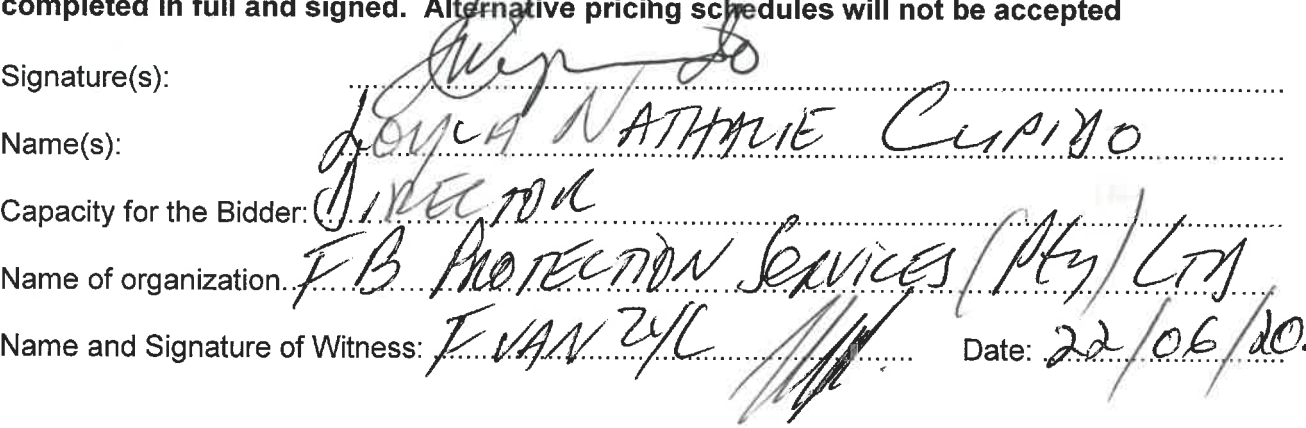 completed in full and signed. Alternative pricing schedules will not be accepted
Signature(s):
Name(s): NATHALIE CUPIDO
Capacity for the Bidder: DIRECTOR
Name of organization. FB PROTECTION SERVICES (Pty) LTD
Name and Signature of Witness: F VAN ZYL Date: 22/06/20.